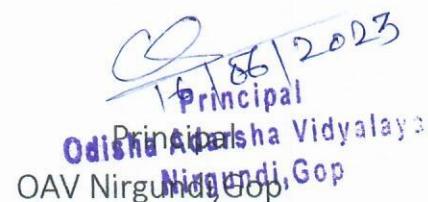 16/06/2023
Principal
Odisha Adarsha Vidyalaya
Nirgundi, Gop
Principal
OAV Nirgundi, Gop